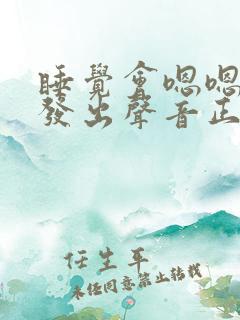 睡覺會嗯嗯
發出聲音正
任生平
未經同意禁止轉載